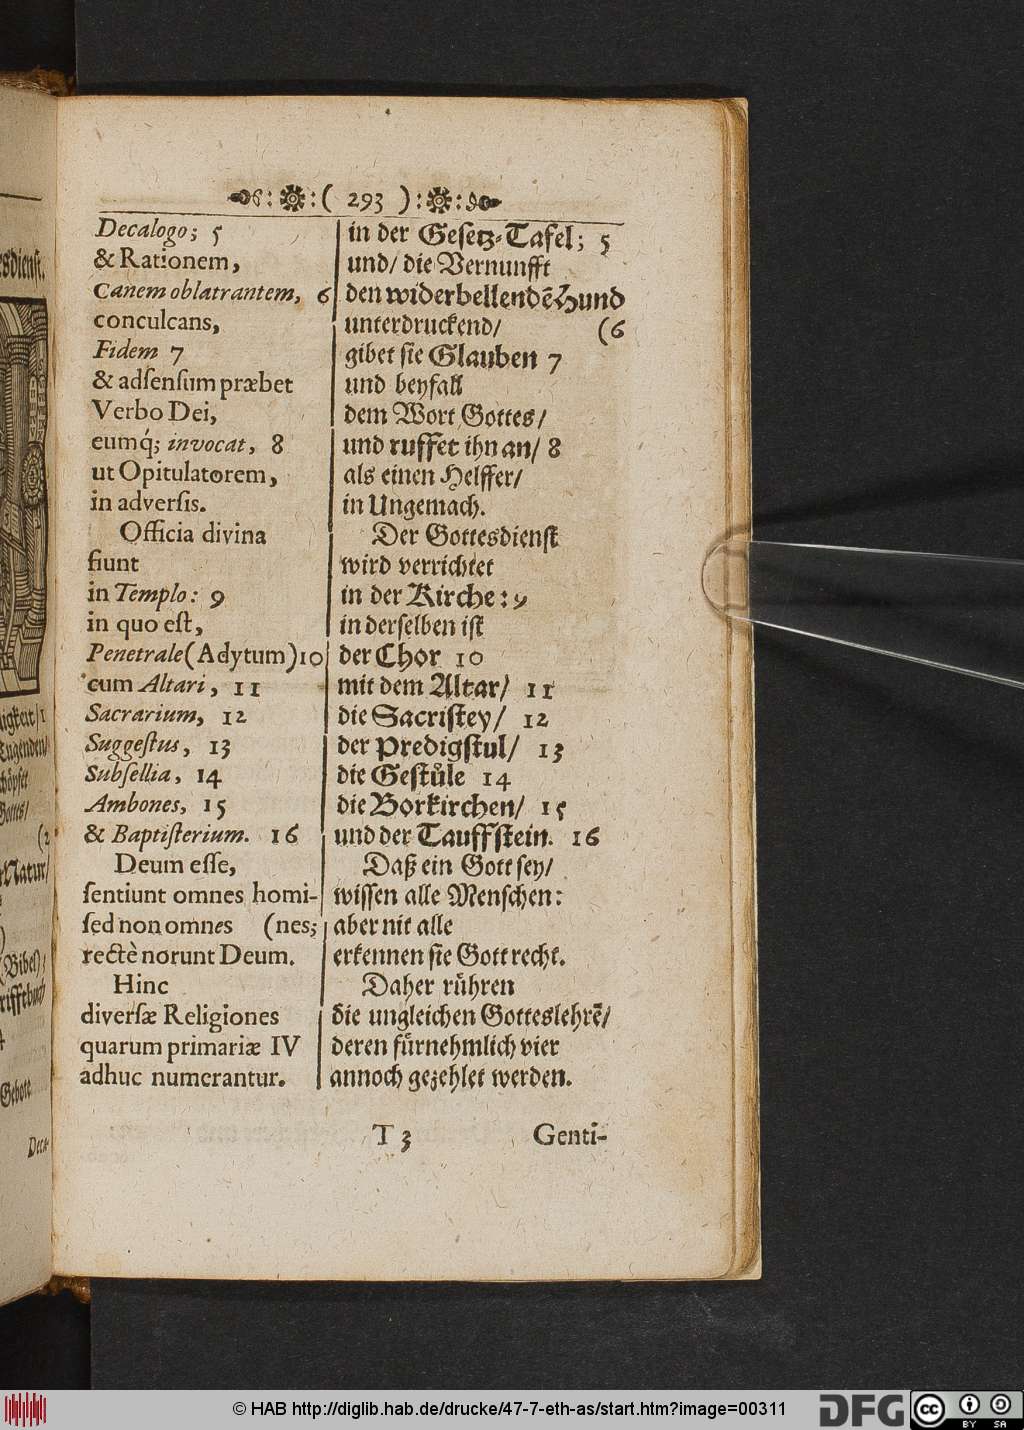 ( 293 )
Decalogo; 5
& Rationem,
Canem oblatrantem, 6
conculcans,
Fidem 7
& adſenſum præbet
Verbo Dei,
eumq́; invocat, 8
ut Opitulatorem,
in adverſis.
Officia divina
fiunt
in Templo: 9
in quo eſt,
Penetrale (Adytum) 10
cum Altari, 11
Sacrarium, 12
Suggeſtus, 13
Subſellia, 14
Ambones, 15
& Baptiſterium. 16
Deum eſſe,
ſentiunt omnes homi-
ſed non omnes (nes;
rectè norunt Deum.
Hinc
diverſæ Religiones
quarum primariæ IV
adhuc numerantur.
in der Geſetz-Tafel; 5
und/ die Vernunfft
den widerbellendẽ Hund
unterdruckend/ (6
gibet ſie Glauben 7
und beyfall
dem Wort Gottes/
und ruffet ihn an/ 8
als einen Helffer/
in Ungemach.
Der Gottesdienſt
wird verrichtet
in der Kirche: 9
in derſelben iſt
der Chor 10
mit dem Altar/ 11
die Sacriſtey/ 12
der Predigſtul/ 13
die Geſtuͤle 14
die Borkirchen/ 15
und der Tauffſtein. 16
Daß ein Gott ſey/
wiſſen alle Menſchen:
aber nit alle
erkennen ſie Gott recht.
Daher ruͤhren
die ungleichen Gotteslehrẽ/
deren fuͤrnehmlich vier
annoch gezehlet werden.
T 3
Genti-
© HAB http://diglib.hab.de/drucke/47-7-eth-as/start.htm?image=00311
DFG
cc
BY SA